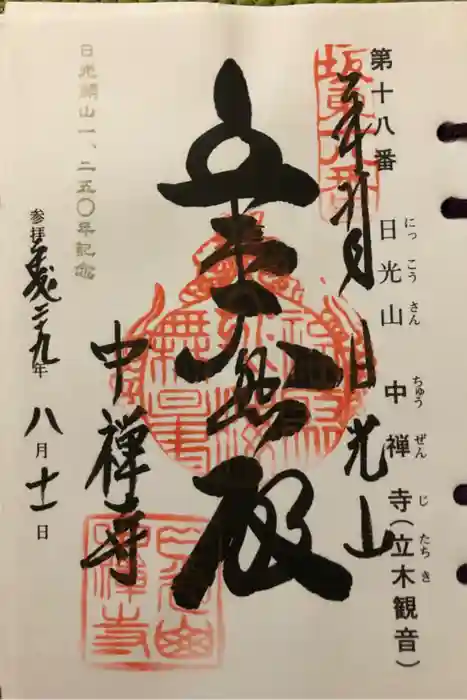 第十八番 日光山 中禅寺(立木観音)
にっこうさん ちゅうぜんじ たちき
日光山
立木大悲殿
中禅寺
日光開山一、二五〇年記念
参拝平成二九年八月十一日